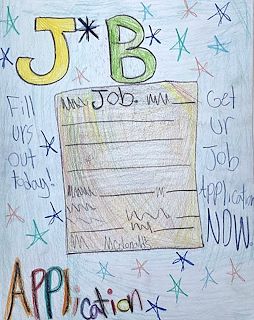 J*B
Job.
Fill
urs
out
today!
Get
ur
Job
Application
NOW.
McDonald's
APPlication